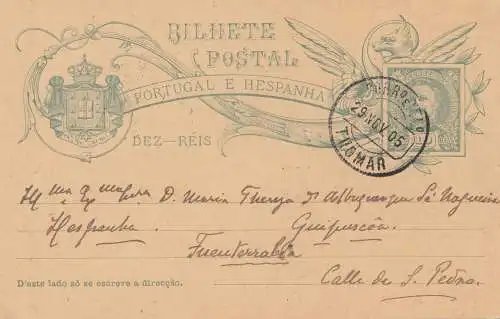 BILHETE
POSTAL
PORTUGAL E HESPANHA
DEZ-RÉIS
CORREIO
29 NOV 05
THOMAR
D. Maria Thereza d'Albuquerque Sá Nogueira
Hespanha. Guipuscôa.
Fuenterrabia
Calle de S. Pedro.
D'este lado só se escreve a direcção.